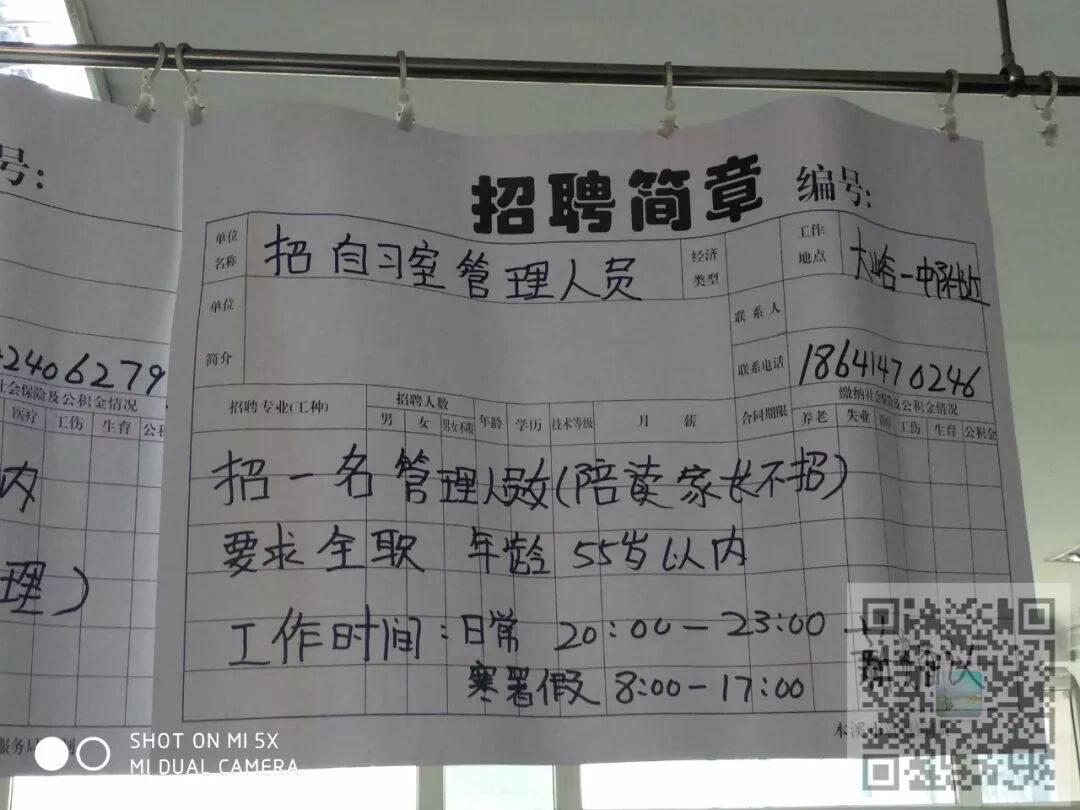 号:
2406279
社会保险及公积金情况
医疗 工伤 生育 公积
内
理)
招聘简章 编号:
单位名称 招自习室管理人员 经济类型 工作地点 大峪一中附近
单位简介 联系人
联系电话 18641470246
招聘专业(工种) 招聘人数 年龄 学历 技术等级 月薪 合同期限 缴纳社会保险及公积金情况
男 女 男女不限 养老 失业 工伤 生育 公积金
招一名管理人员女(陪读家长不招)
要求全职 年龄 55岁以内
工作时间:日常 20:00-23:00
寒署假 8:00-17:00
SHOT ON MI 5X
MI DUAL CAMERA